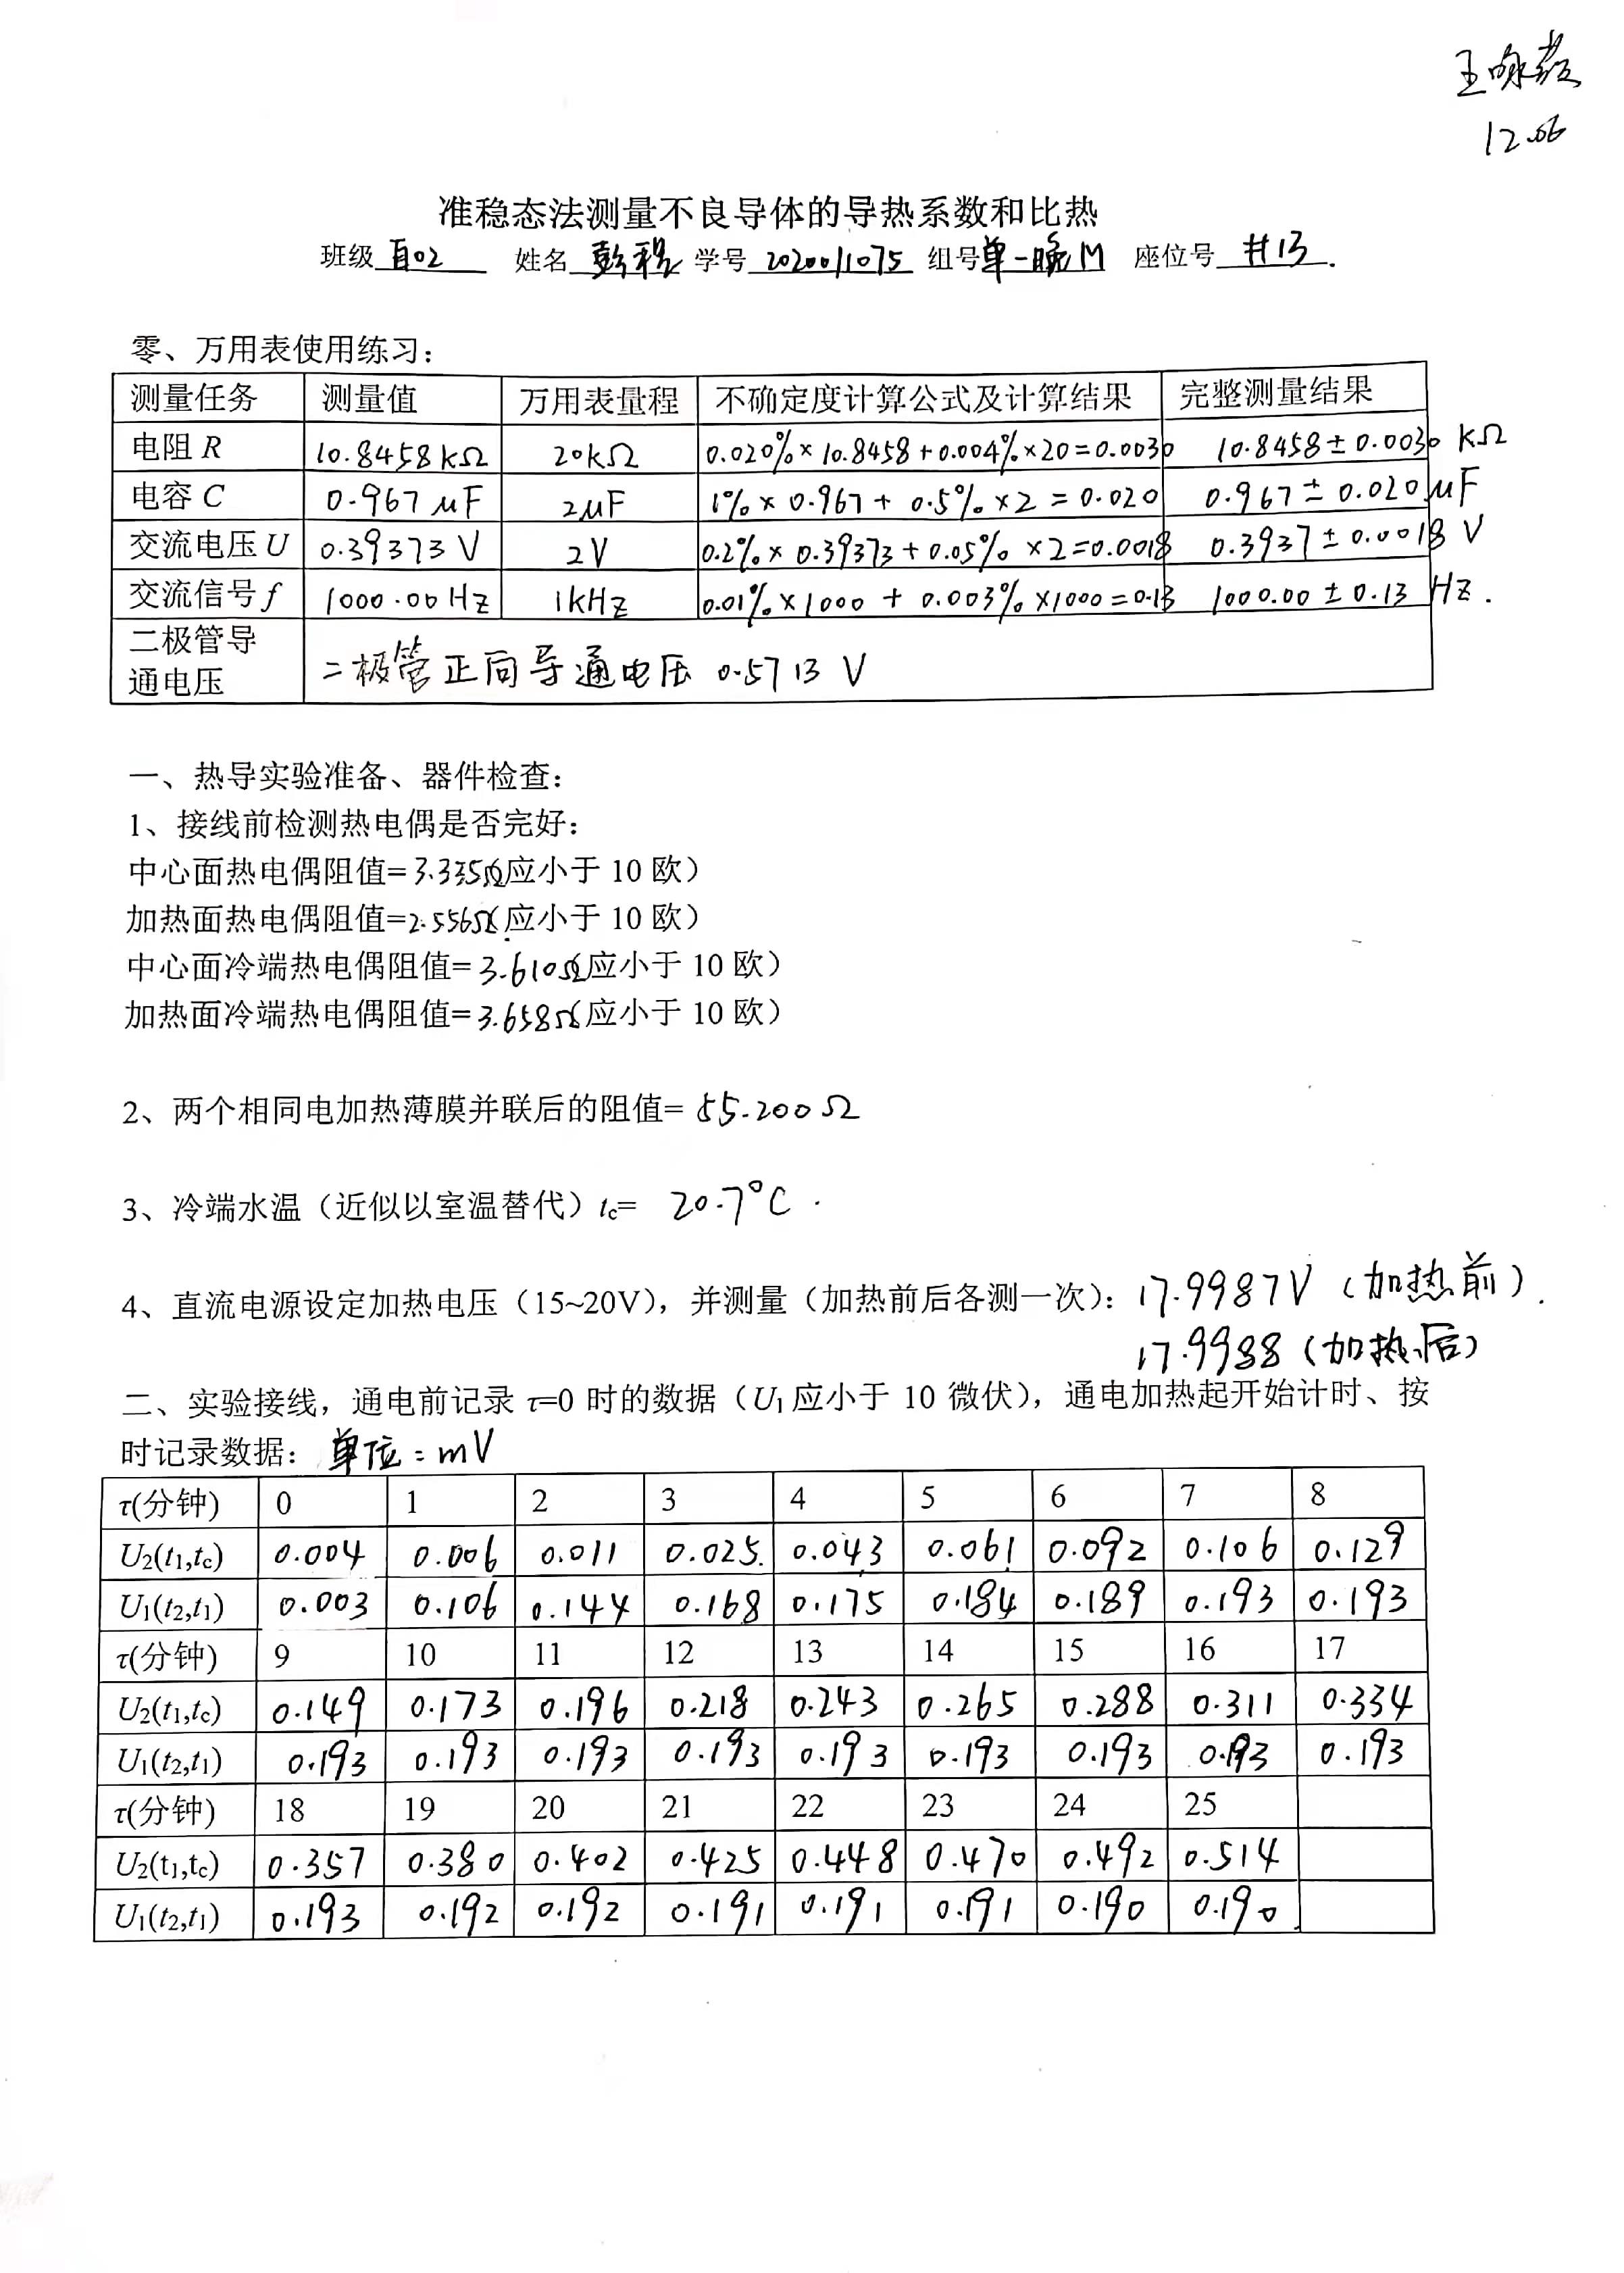 王咏
12.06
准稳态法测量不良导体的导热系数和比热
班级 自02 姓名 彭程 学号 2020011075 组号 单一晚M 座位号 #13.
零、万用表使用练习：
测量任务 测量值 万用表量程 不确定度计算公式及计算结果 完整测量结果
电阻 R 10.8458 kΩ 20kΩ 0.020%×10.8458+0.004%×20=0.0030 10.8458±0.0030 kΩ
电容 C 0.967 μF 2μF 1%×0.967+0.5%×2=0.020 0.967±0.020 μF
交流电压 U 0.39373 V 2V 0.2%×0.39373+0.05%×2=0.0018 0.3937±0.0018 V
交流信号 f 1000.00 Hz 1kHz 0.01%×1000+0.003%×1000=0.13 1000.00±0.13 Hz.
二极管导
通电压 二极管正向导通电压 0.5713 V
一、热导实验准备、器件检查：
1、接线前检测热电偶是否完好：
中心面热电偶阻值=3.335Ω（应小于 10 欧）
加热面热电偶阻值=2.556Ω（应小于 10 欧）
中心面冷端热电偶阻值=3.610Ω（应小于 10 欧）
加热面冷端热电偶阻值=3.658Ω（应小于 10 欧）
2、两个相同电加热薄膜并联后的阻值= 55.200Ω
3、冷端水温（近似以室温替代）tc= 20.7℃.
4、直流电源设定加热电压（15~20V），并测量（加热前后各测一次）：17.9987V（加热前）.
17.9988（加热后）
二、实验接线，通电前记录 τ=0 时的数据（U1 应小于 10 微伏），通电加热起开始计时、按
时记录数据：单位：mV
τ(分钟) 0 1 2 3 4 5 6 7 8
U2(t1,tc) 0.004 0.006 0.011 0.025 0.043 0.061 0.092 0.106 0.129
U1(t2,t1) 0.003 0.106 0.144 0.168 0.175 0.184 0.189 0.193 0.193
τ(分钟) 9 10 11 12 13 14 15 16 17
U2(t1,tc) 0.149 0.173 0.196 0.218 0.243 0.265 0.288 0.311 0.334
U1(t2,t1) 0.193 0.193 0.193 0.193 0.193 0.193 0.193 0.193 0.193
τ(分钟) 18 19 20 21 22 23 24 25
U2(t1,tc) 0.357 0.380 0.402 0.425 0.448 0.470 0.492 0.514
U1(t2,t1) 0.193 0.192 0.192 0.191 0.191 0.191 0.190 0.190